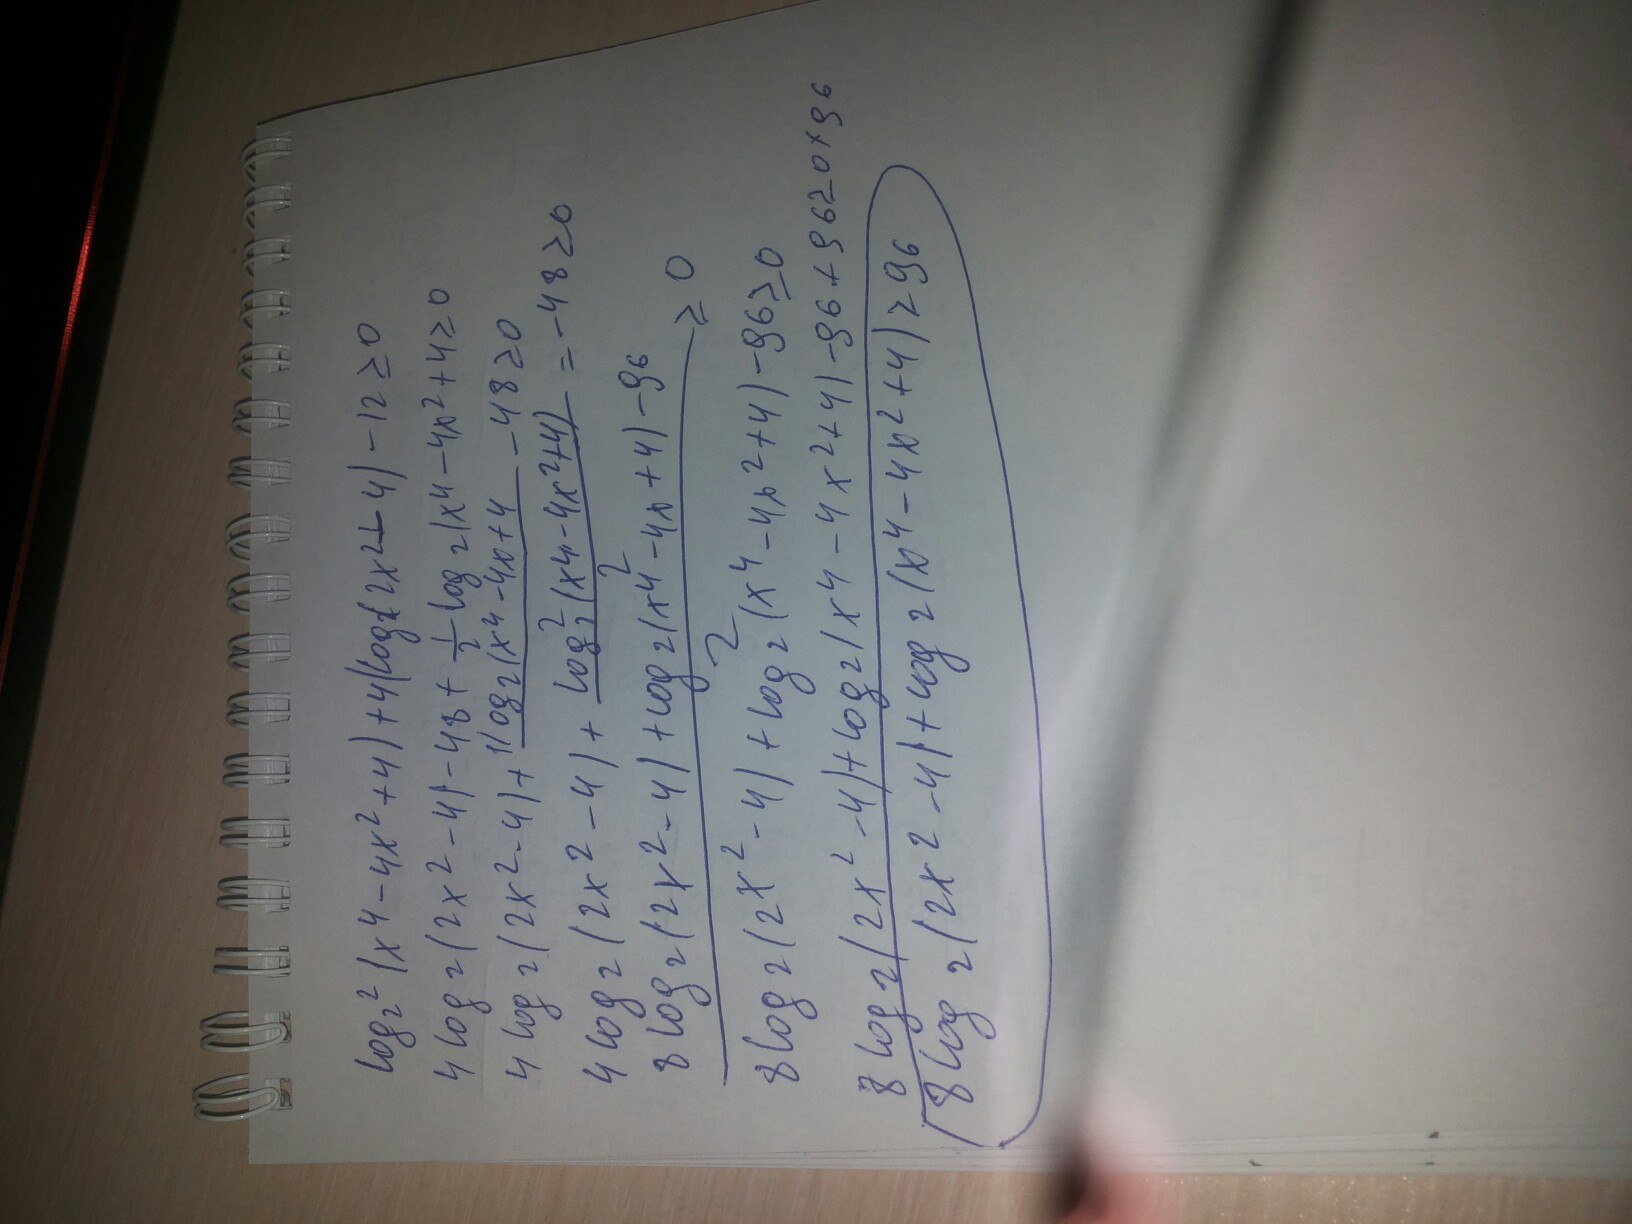 log₂² (x4-4x²+4)+4(log₂2x2-4)-12≥0
4log₂(2x²-4)-48+½log₂(x4-4x²+4≥0
4log₂(2x²-4)+1(log₂(x4-4x+4-48≥0
4log₂(2x2-4)+log₂²(x4-4x²+4)=-48≥0
8log₂(2x²-4)+log₂²(x4²-4x+4)-96≥0
8log₂(2x²-4)+log₂²(x4-4x²+4)-96≥0
8log₂(2x²-4)+log₂(x4-4x²+4)-96+96≥0+96
8log₂(2x²-4)+log₂(x4-4x²+4)≥96